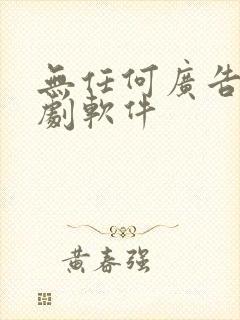 無任何廣告
劇軟件
黃春强